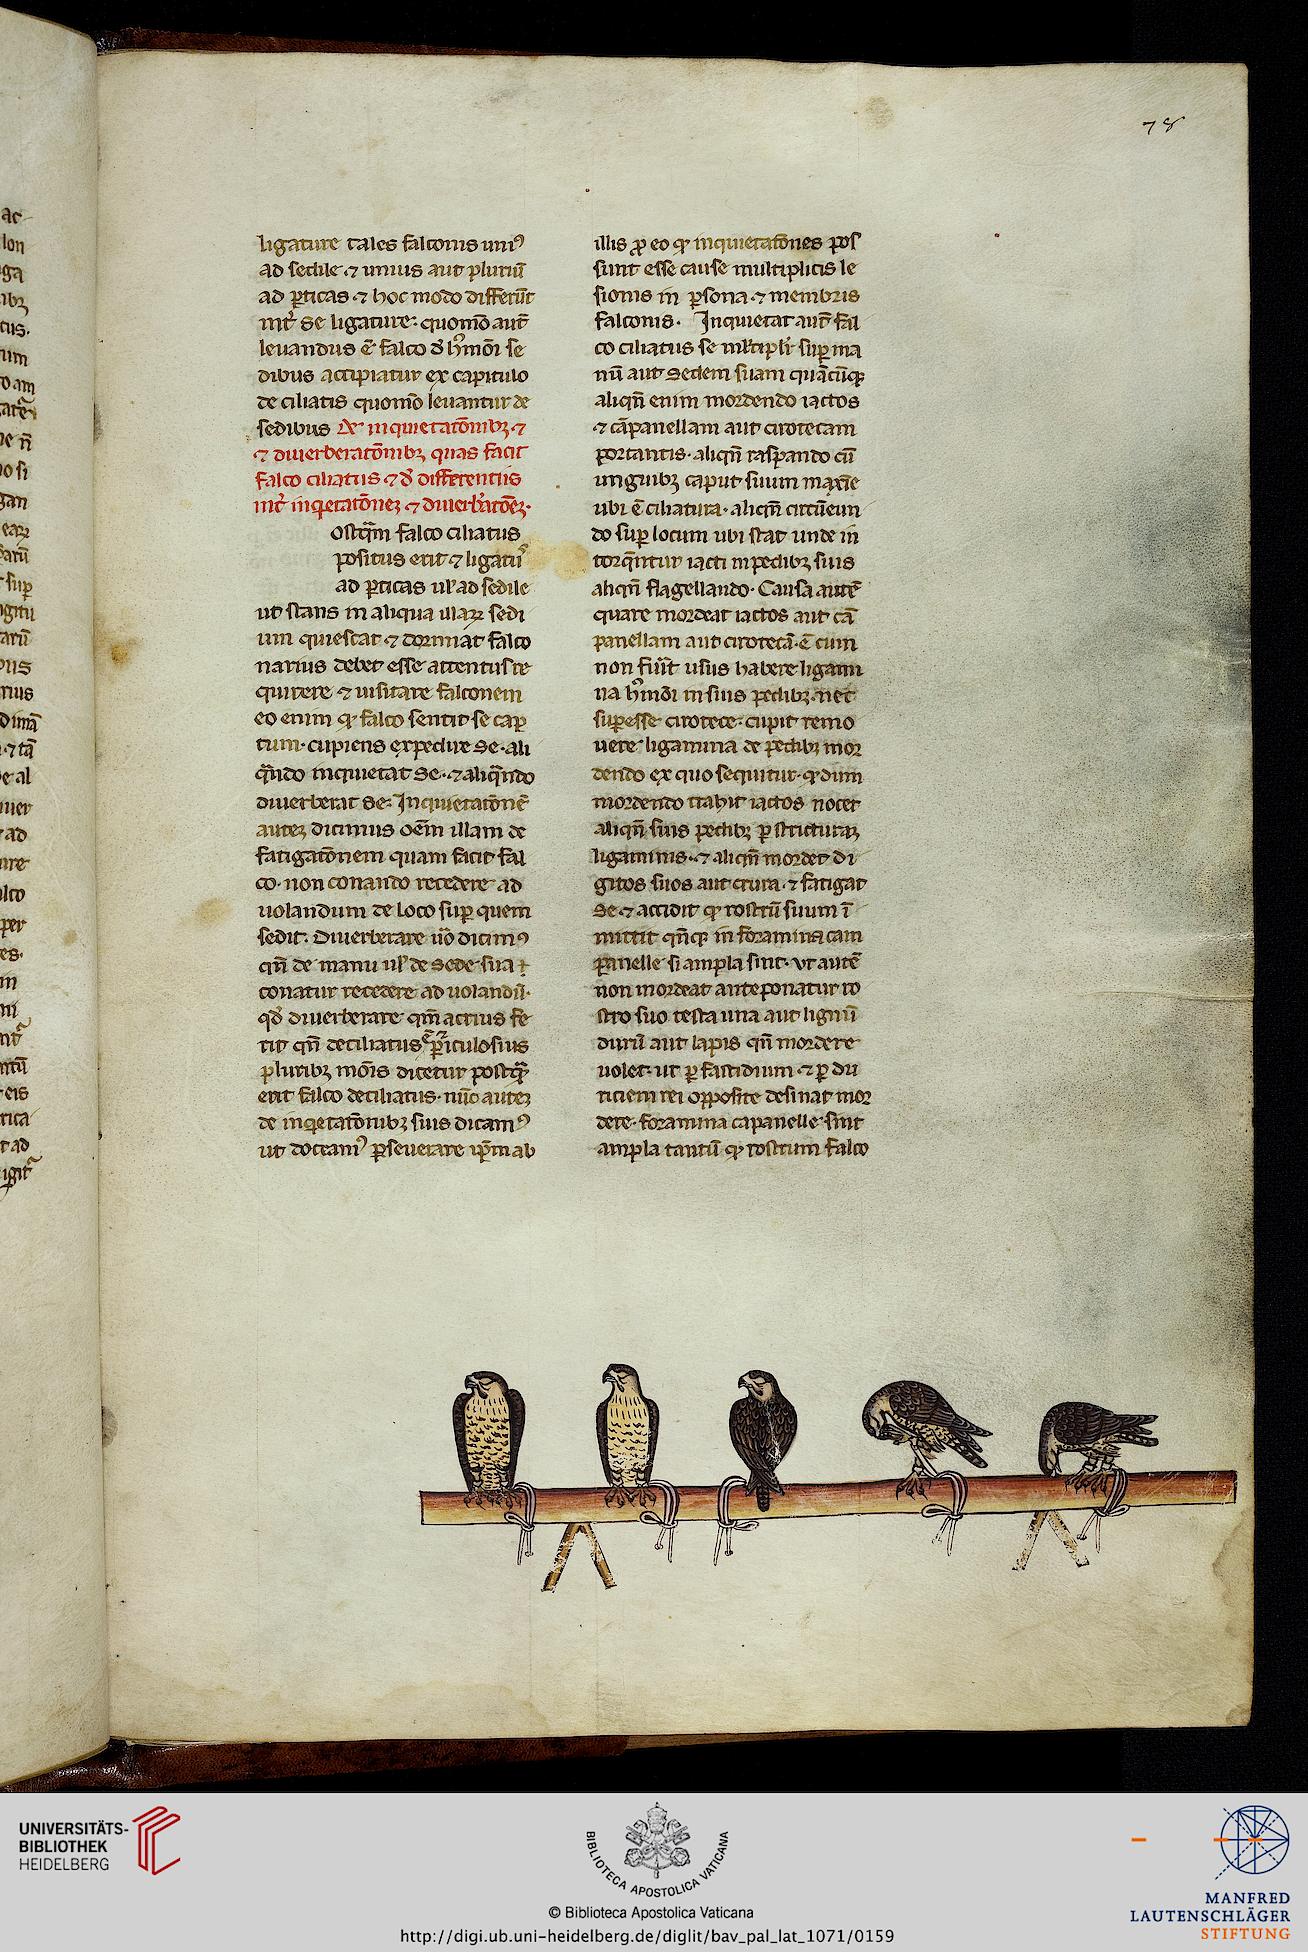 78
ligature tales falconis uni⁹
ad sedile ⁊ unius aut pluriū
ad ꝑticas ⁊ hoc modo differūt
int᷑ se ligature. quomō aut̄
leuandus ē falco d̄ hmōi se
dibus accipiatur ex capitulo
de ciliatis quomō leuantur de
sedibus De inquietatōnibꝫ ⁊
⁊ diuerberatōnibꝫ quas facit
falco ciliatus ⁊ d̄ differentiis
int᷑ inqetatōneꝫ ⁊ diuerb̄atōeꝫ.
ostq̄m falco ciliatus
positus erit ⁊ ligatu᷑
ad ꝑticas ul᷑ ad sedile
ut stans in aliqua illaꝝ sedi
um quiescat ⁊ dormiat falco
narius debet esse attentus re
quirere ⁊ uisitare falconem
eo enim ꝙ falco sentit se cap
tum. cupiens expedire se. ali
q̄ndo inquietat se. ⁊ aliq̄ndo
diuerberat se. Inquietatōnē
auteꝫ dicimus oēm illam de
fatigatōnem quam facit fal
co. non conando recedere ad
uolandum de loco suꝑ quem
sedit. Diuerberare uō dicim⁹
qn̄ de manu ul᷑ de sede sua
conatur recedere ad uolandū.
qd̄ diuerberare qm̄ actius fe
rit qn̄ deciliatus ē ꝑiculosius
pluribꝫ mōis dicetur postq̄
erit falco deciliatus. nūc auteꝫ
de inqetatōnibꝫ suis dicam⁹
ut doceam⁹ ꝑseuerare ip̄m ab
illis ꝓ eo ꝙ inquietatōnes pos
sunt esse cause multiplicis le
sionis in ꝑsona ⁊ membris
falconis. Inquietat aut̄ fal
co ciliatus se ml̄tiplr̄ suꝑ ma
nū aut sedem suam quācūqꝫ
aliqn̄ enim mordendo iactos
⁊ cāpanellam aut cirotecam
portantis. aliqn̄ raspando cū
unguibꝫ caput suum maxīe
ubi ē ciliatura. aliqn̄ circūeun
do suꝑ locum ubi stat unde in
torq̄ntur iacti in pedibꝫ suis
aliqn̄ flagellando. Causa autē
quare mordeat iactos aut cā
panellam aut cirotecā. ē cum
non fuīt usus habere ligami
na hmōi in suis pedibꝫ. nec
suꝑesse cirotece. cupit remo
uere ligamina de pedibꝫ mor
dendo ex quo sequitur. ꝙ dum
mordendo trahit iactos nocet
aliqn̄ suis pedibꝫ ꝑ stricturaꝫ
ligaminis. ⁊ aliqn̄ mordet di
gitos suos aut crura. ⁊ fatigat
se. ⁊ accidit ꝙ rostrū suum ī
mittit qn̄qꝫ in foramina cam
panelle si ampla sint. ut autē
non mordeat anteponatur ro
stro suo testa una aut lignū
durū aut lapis qn̄ mordere
uolet. ut ꝑ fastidium ⁊ ꝑ du
riciem rei opposite desinat mor
dere. foramina capanelle sint
ampla tantū ꝙ rostrum falco
UNIVERSITÄTS-
BIBLIOTHEK
HEIDELBERG
BIBLIOTECA APOSTOLICA VATICANA
© Biblioteca Apostolica Vaticana
http://digi.ub.uni-heidelberg.de/diglit/bav_pal_lat_1071/0159
MANFRED
LAUTENSCHLÄGER
STIFTUNG